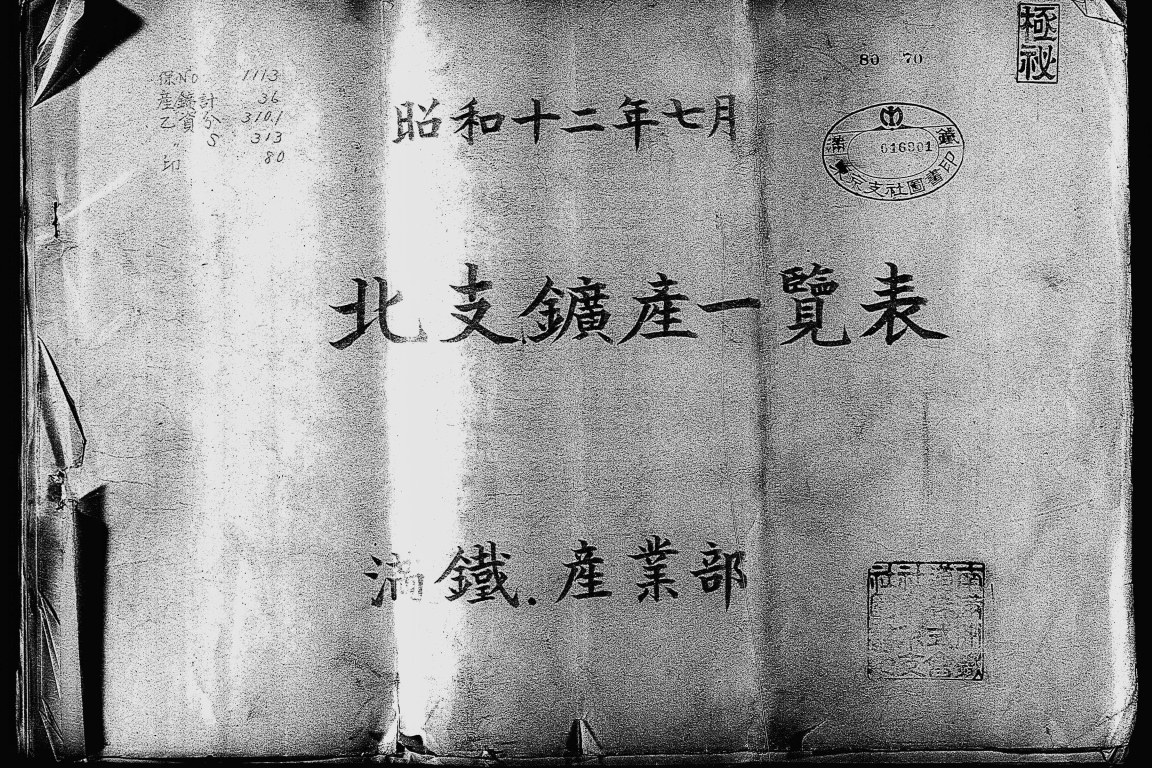 極秘
80 70
保NO 1113
産鉄計 36
乙資分 310.1
〃 S 313
印 80
昭和十二年七月
満鐵
016801
東京支社圖書印
北支鑛産一覧表
満鐵.産業部